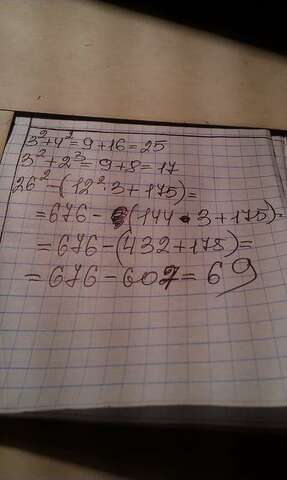 3²+4²=9+16=25
3²+2³=9+8=17
26²-(12²·3+175)=
=676-(144·3+175)=
=676-(432+175)=
=676-607=69